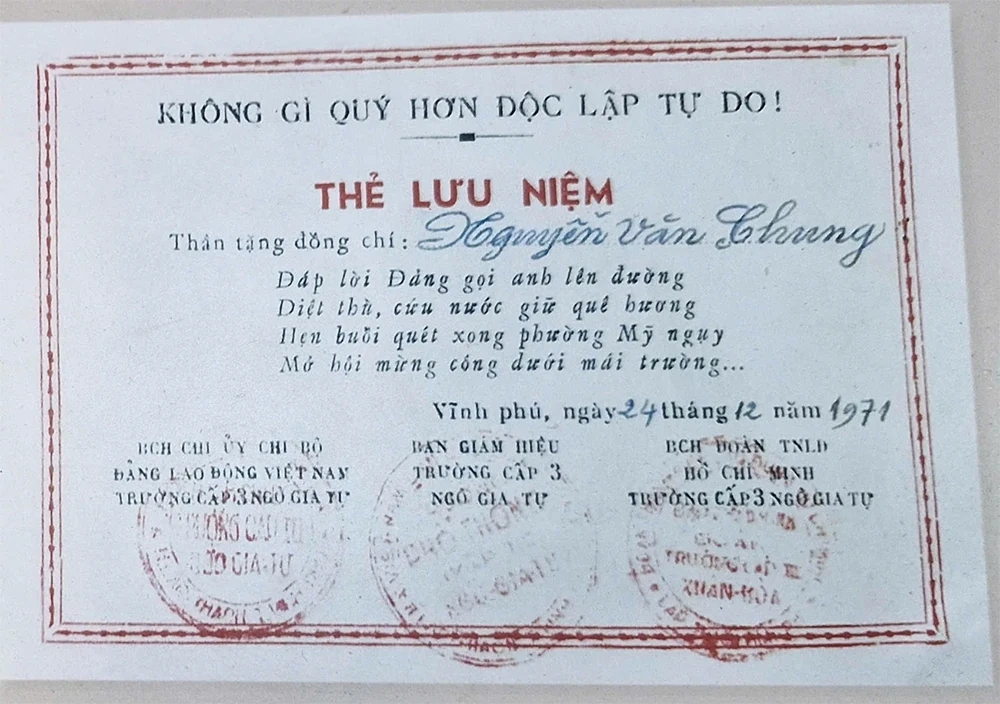 KHÔNG GÌ QUÝ HƠN ĐỘC LẬP TỰ DO!
THẺ LƯU NIỆM
Thân tặng đồng chí: Nguyễn Văn Chung
Đáp lời Đảng gọi anh lên đường
Diệt thù, cứu nước giữ quê hương
Hẹn buổi quét xong phường Mỹ ngụy
Mở hội mừng công dưới mái trường...
Vĩnh phú, ngày 24 tháng 12 năm 1971
BCH CHI ỦY CHI BỘ
ĐẢNG LAO ĐỘNG VIỆT NAM
TRƯỜNG CẤP 3 NGÔ GIA TỰ
BAN GIÁM HIỆU
TRƯỜNG CẤP 3
NGÔ GIA TỰ
BCH ĐOÀN TNLĐ
HỒ CHÍ MINH
TRƯỜNG CẤP 3 NGÔ GIA TỰ
TRƯỜNG CẤP III
XUAN-HÒA